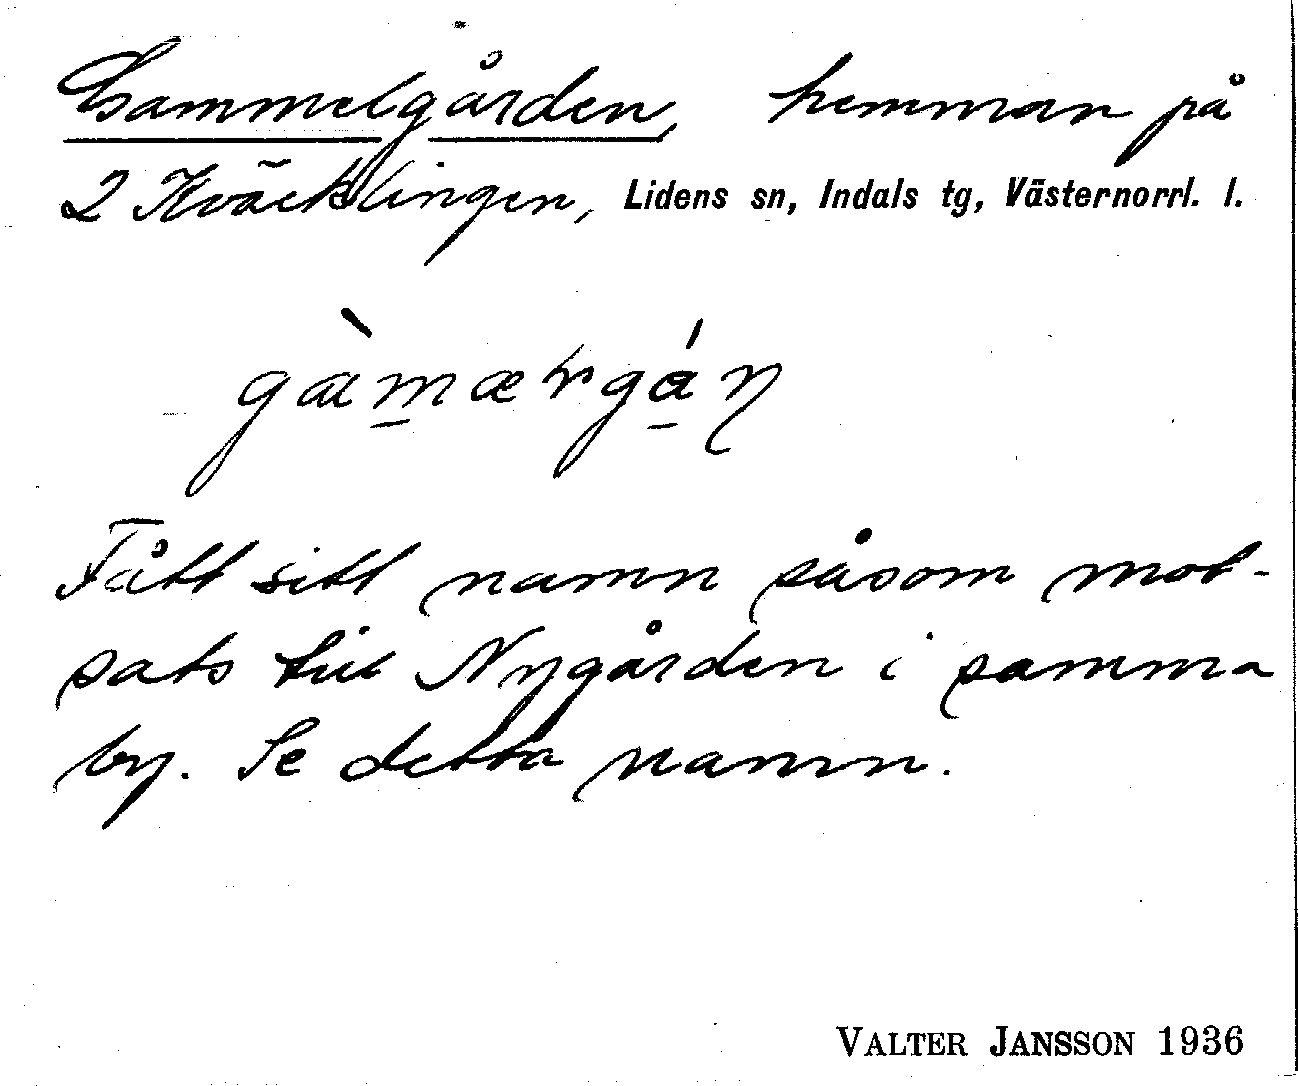 Gammelgården, hemman på
2 Kväcklingen, Lidens sn, Indals tg, Västernorrl. l.
Fått sitt namn såsom mot-
sats till Nygården i samma
by. Se detta namn.
VALTER JANSSON 1936